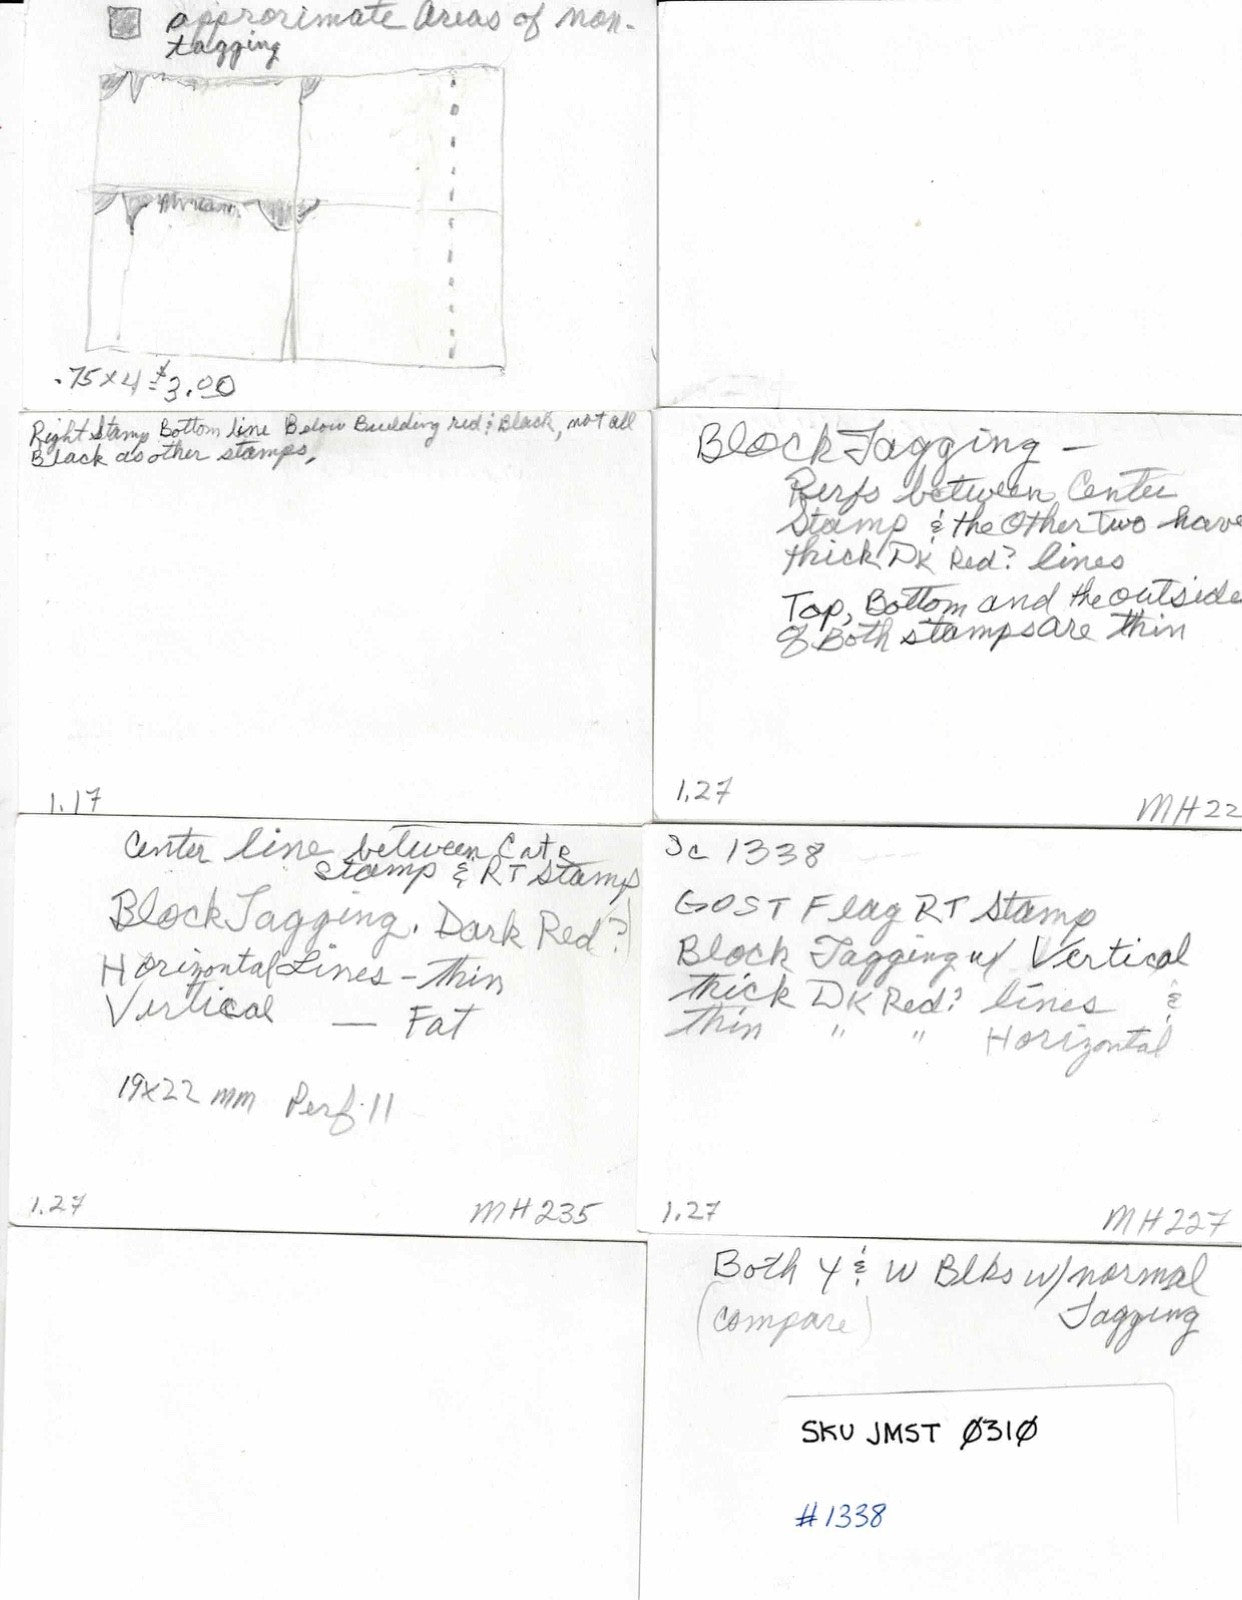 approximate Areas of non-
tagging
.75x4 = $3.00
Right Stamp Bottom line Below Building red & Black, not all
Black as other stamps,
1.17
Block Tagging -
Perfs between Center
Stamp & the Other Two have
thick DK Red? lines
Top, Bottom and the outside
of Both stamps are thin
1.27
MH22
Center line between Cntr
stamp & RT Stamp
Block Tagging. Dark Red?
Horizontal Lines - thin
Vertical — Fat
19x22 mm Perf 11
1.27
MH235
Sc 1338
GOST Flag RT Stamp
Block Tagging w/ Vertical
thick DK Red? lines &
thin " " Horizontal
1.27
MH227
Both Y & W Blks w/ normal
(compare) Tagging
SKU JMST 0310
#1338